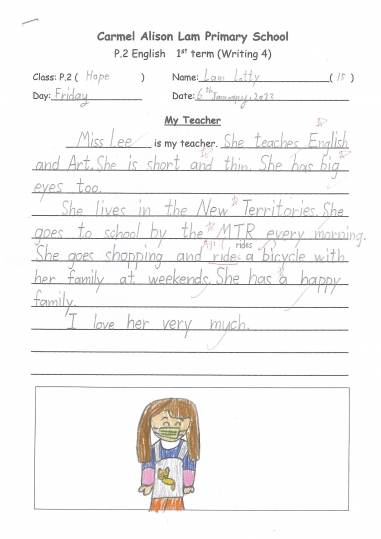 Carmel Alison Lam Primary School
P.2 English 1st term (Writing 4)
Class: P.2 ( Hope ) Name: Lam Lotty ( 15 )
Day: Friday Date: 6th January, 2023
My Teacher
Miss Lee is my teacher. She teaches English
and Art. She is short and thin. She has big
eyes too.
She lives in the New Territories. She
goes to school by the MTR every morning.
rides
She goes shopping and rides a bicycle with
her family at weekends. She has a happy
family.
I love her very much.